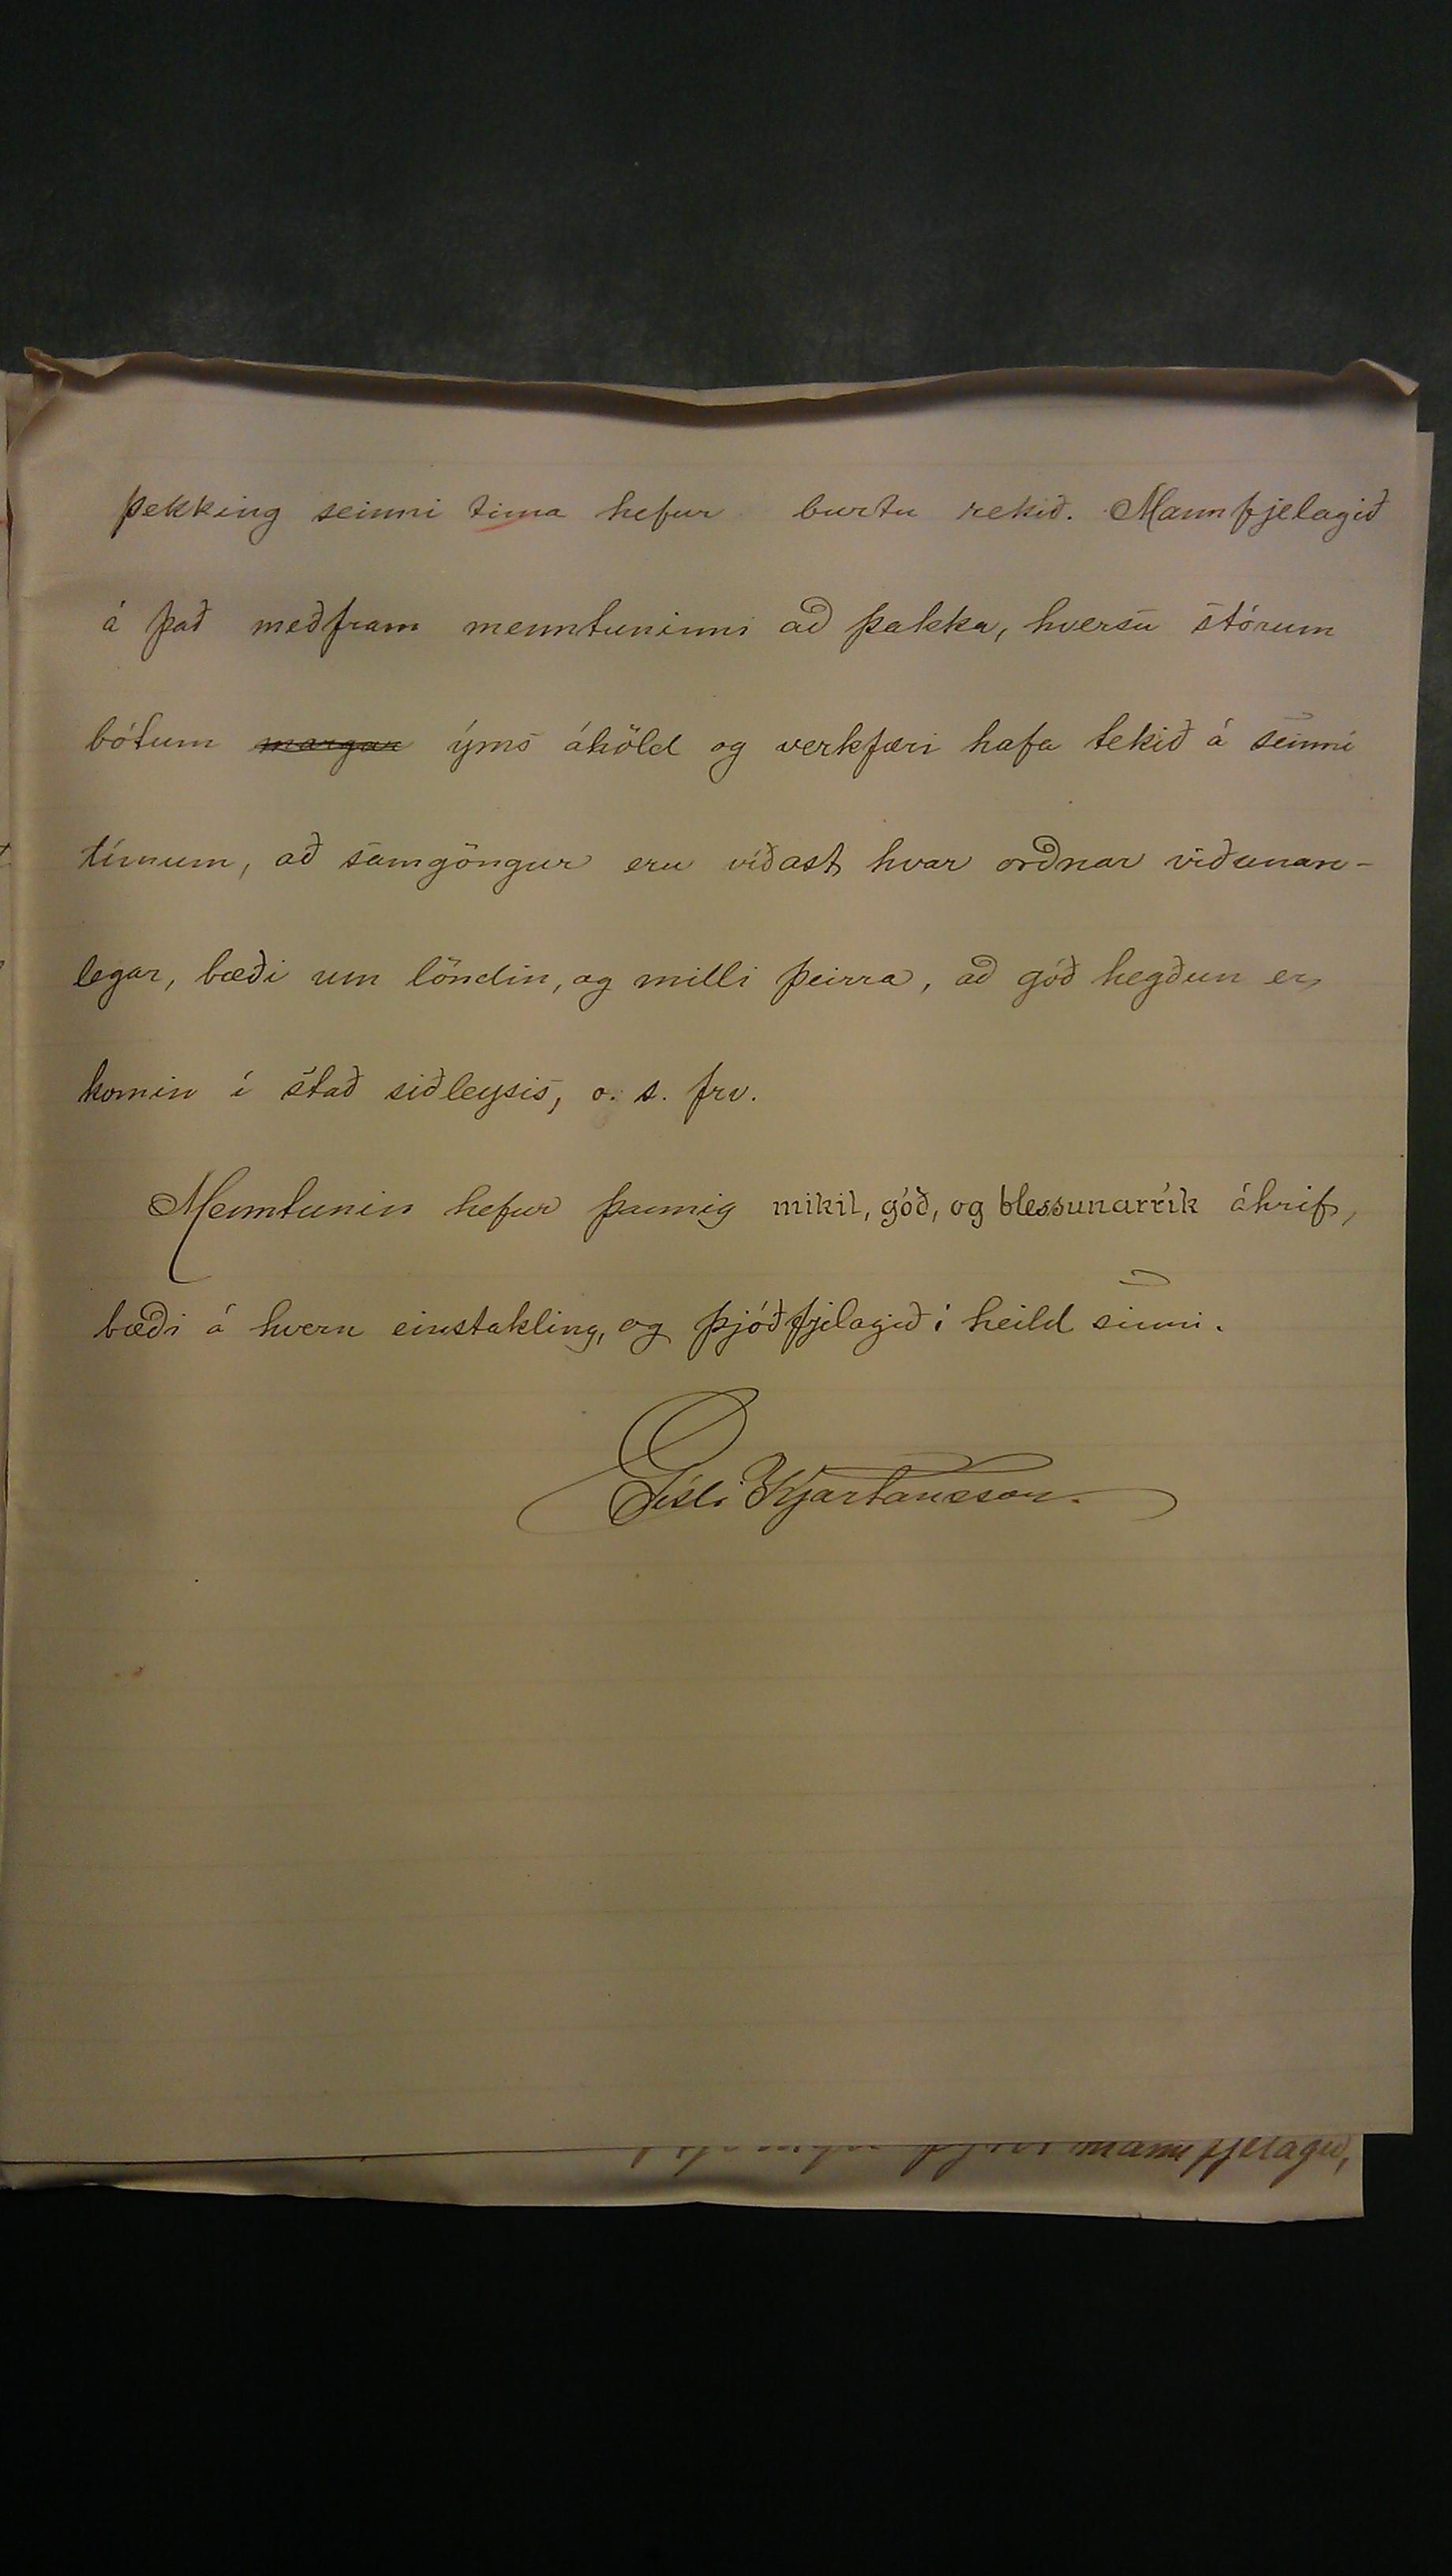 þekking seinni tima hefur burtu rekið. Mannfjelagið
á það meðfram menntuninni að þakka, hversu stórum
bótum margar ýms áhöld og verkfæri hafa tekið á seinni
tímum, að samgöngur eru víðast hvar orðnar viðunan-
legar, bæði um löndin, og milli þeirra, að góð hegðun er
komin í stað siðleysis, o. s. frv.
Menntunin hefur þannig mikil, góð, og blessunarrík áhrif,
bæði á hvern einstakling, og þjóðfjelagið í heild sinni.
Gísli Kjartansson.
mannfjelagið,